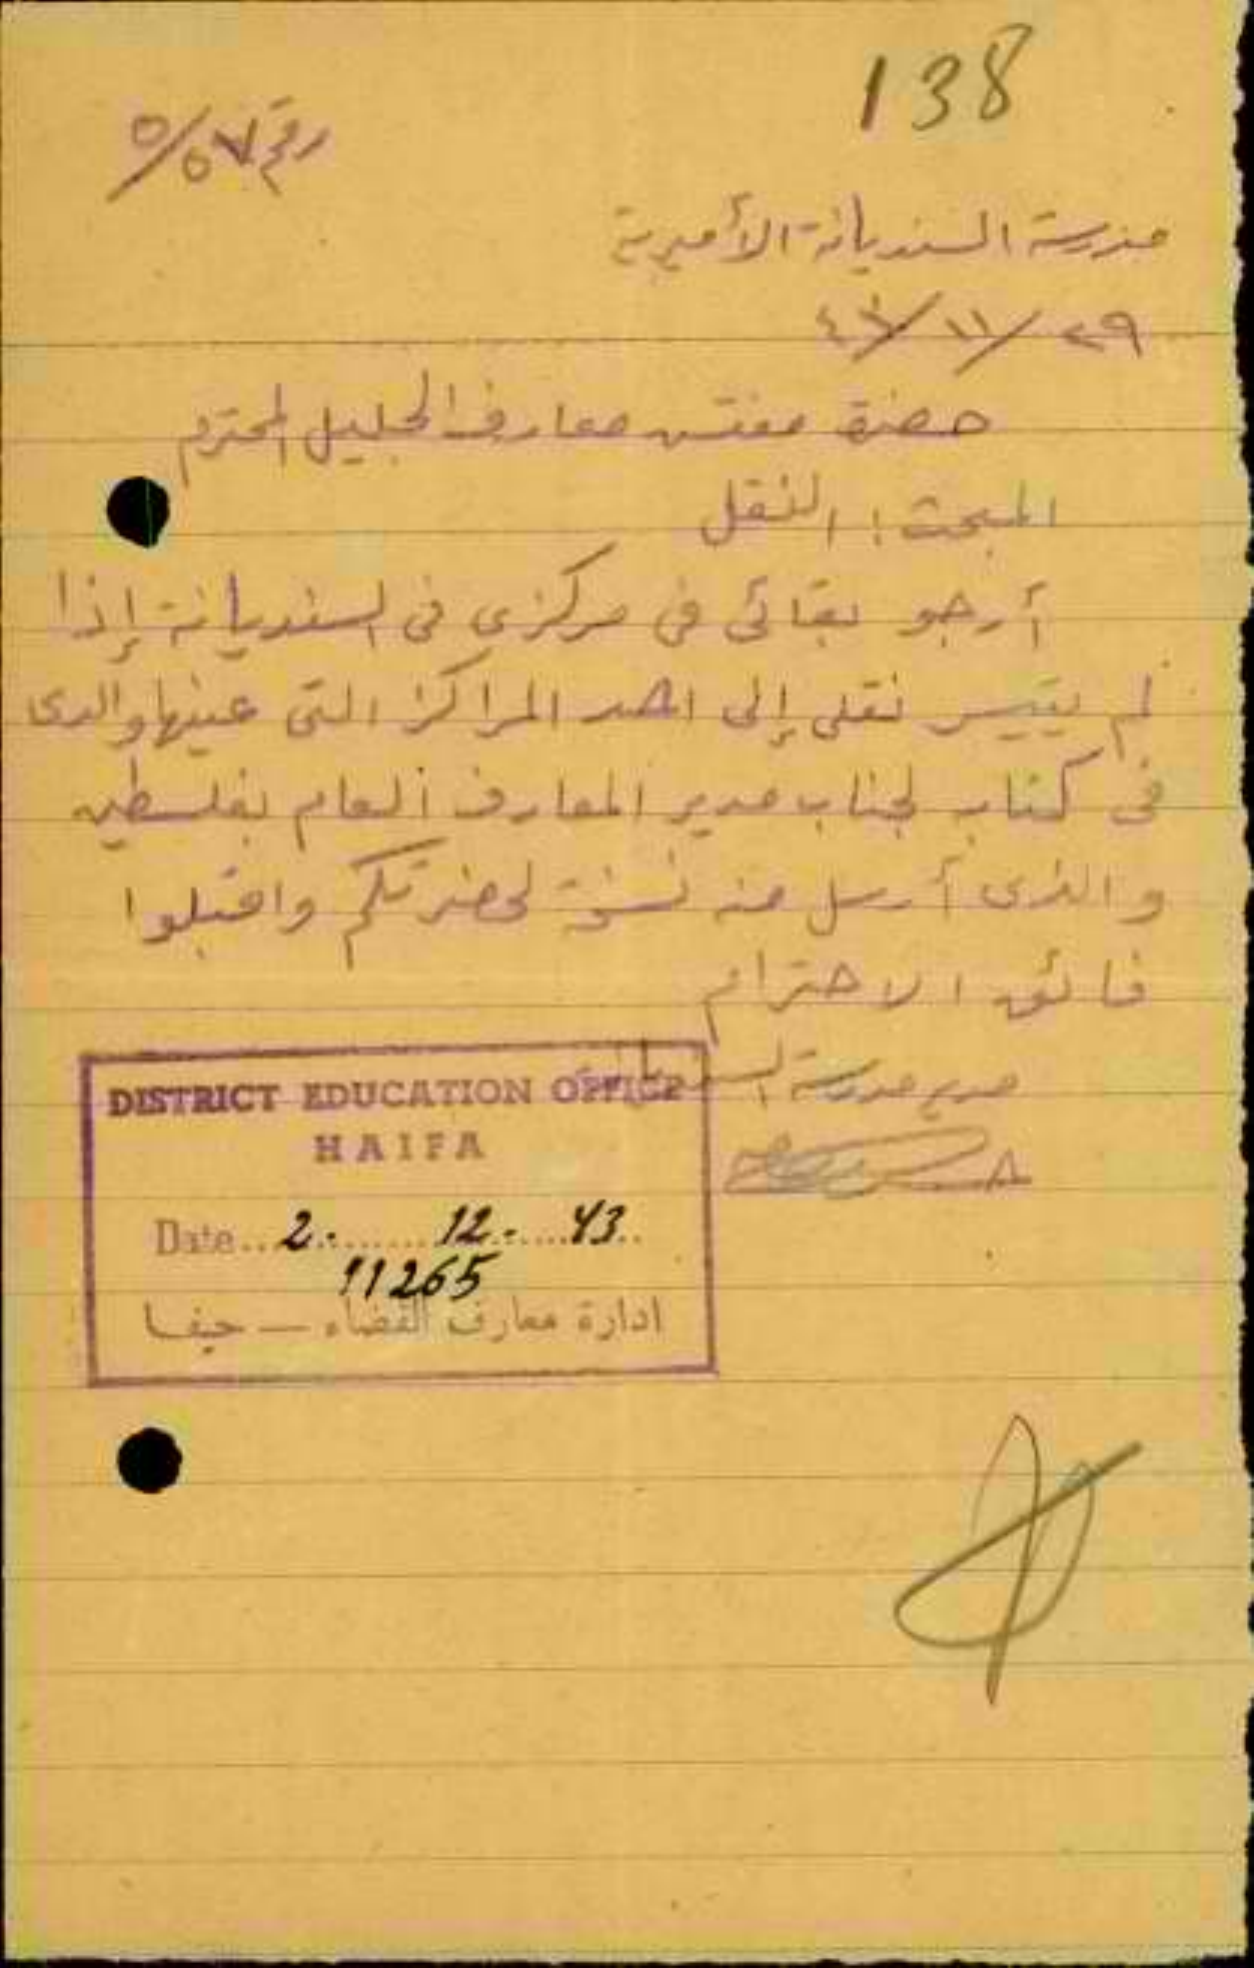 138
رقم ٥/٥٧
مدرسة السنديانة الأميرية
٢٩/١١/٤٣
حضرة مفتش معارف الجليل المحترم
المبحث : النقل
أرجو بقائي في مركزي في السنديانة إذا
لم يتيسر نقلي إلى احد المراكز التي عينها والدي
في كتاب لجناب مدير المعارف العام بفلسطين
والذي أرسل منه نسخة لحضرتكم واقبلوا
فائق الاحترام
مدير مدرسة السنديانة
DISTRICT EDUCATION OFFICE
HAIFA
Date... 2. ....... 12. .... 43..
11265
ادارة معارف القضاء — حيفا